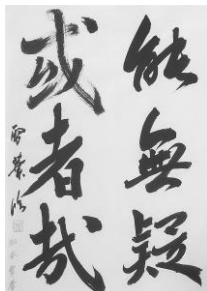 能無疑
或者哉